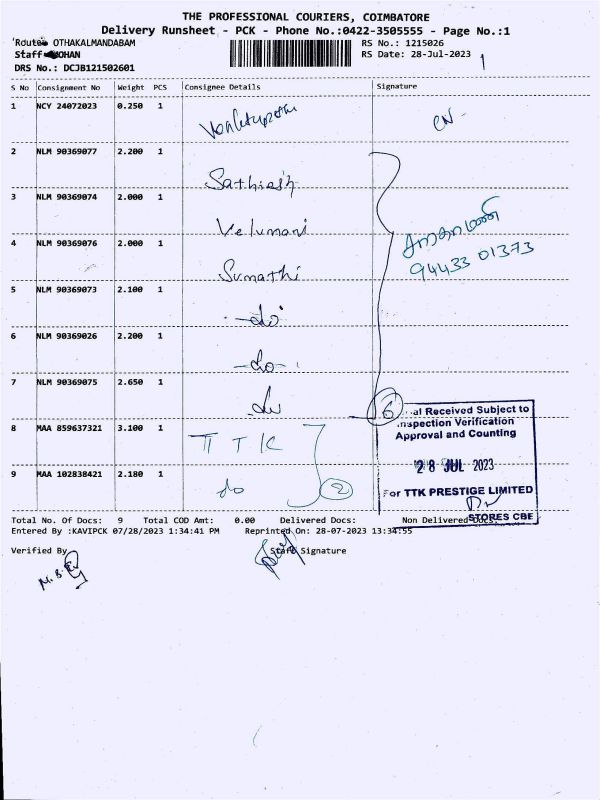 THE PROFESSIONAL COURIERS, COIMBATORE
Delivery Runsheet - PCK - Phone No.:0422-3505555 - Page No.:1
Route: OTHAKALMANDABAM RS No.: 1215026
Staff MOHAN RS Date: 28-Jul-2023 1
DRS No.: DCJB121502601
S No Consignment No Weight PCS Consignee Details Signature
1 NCY 24072023 0.250 1
2 NLM 90369077 2.200 1 Sathiesh
3 NLM 90369074 2.000 1 Velumani
4 NLM 90369076 2.000 1 Sumathi 94433 01373
5 NLM 90369073 2.100 1 -do-
6 NLM 90369026 2.200 1 -do-
7 NLM 90369075 2.650 1 do 6
al Received Subject to
Inspection Verification
Approval and Counting
8 MAA 859637321 3.100 1 TTK
28 JUL 2023
9 MAA 102838421 2.180 1 do 2
For TTK PRESTIGE LIMITED
STORES CBE
Total No. Of Docs: 9 Total COD Amt: 0.00 Delivered Docs: Non Delivered Docs:
Entered By :KAVIPCK 07/28/2023 1:34:41 PM Reprinted On: 28-07-2023 13:34:55
Verified By Staff Signature